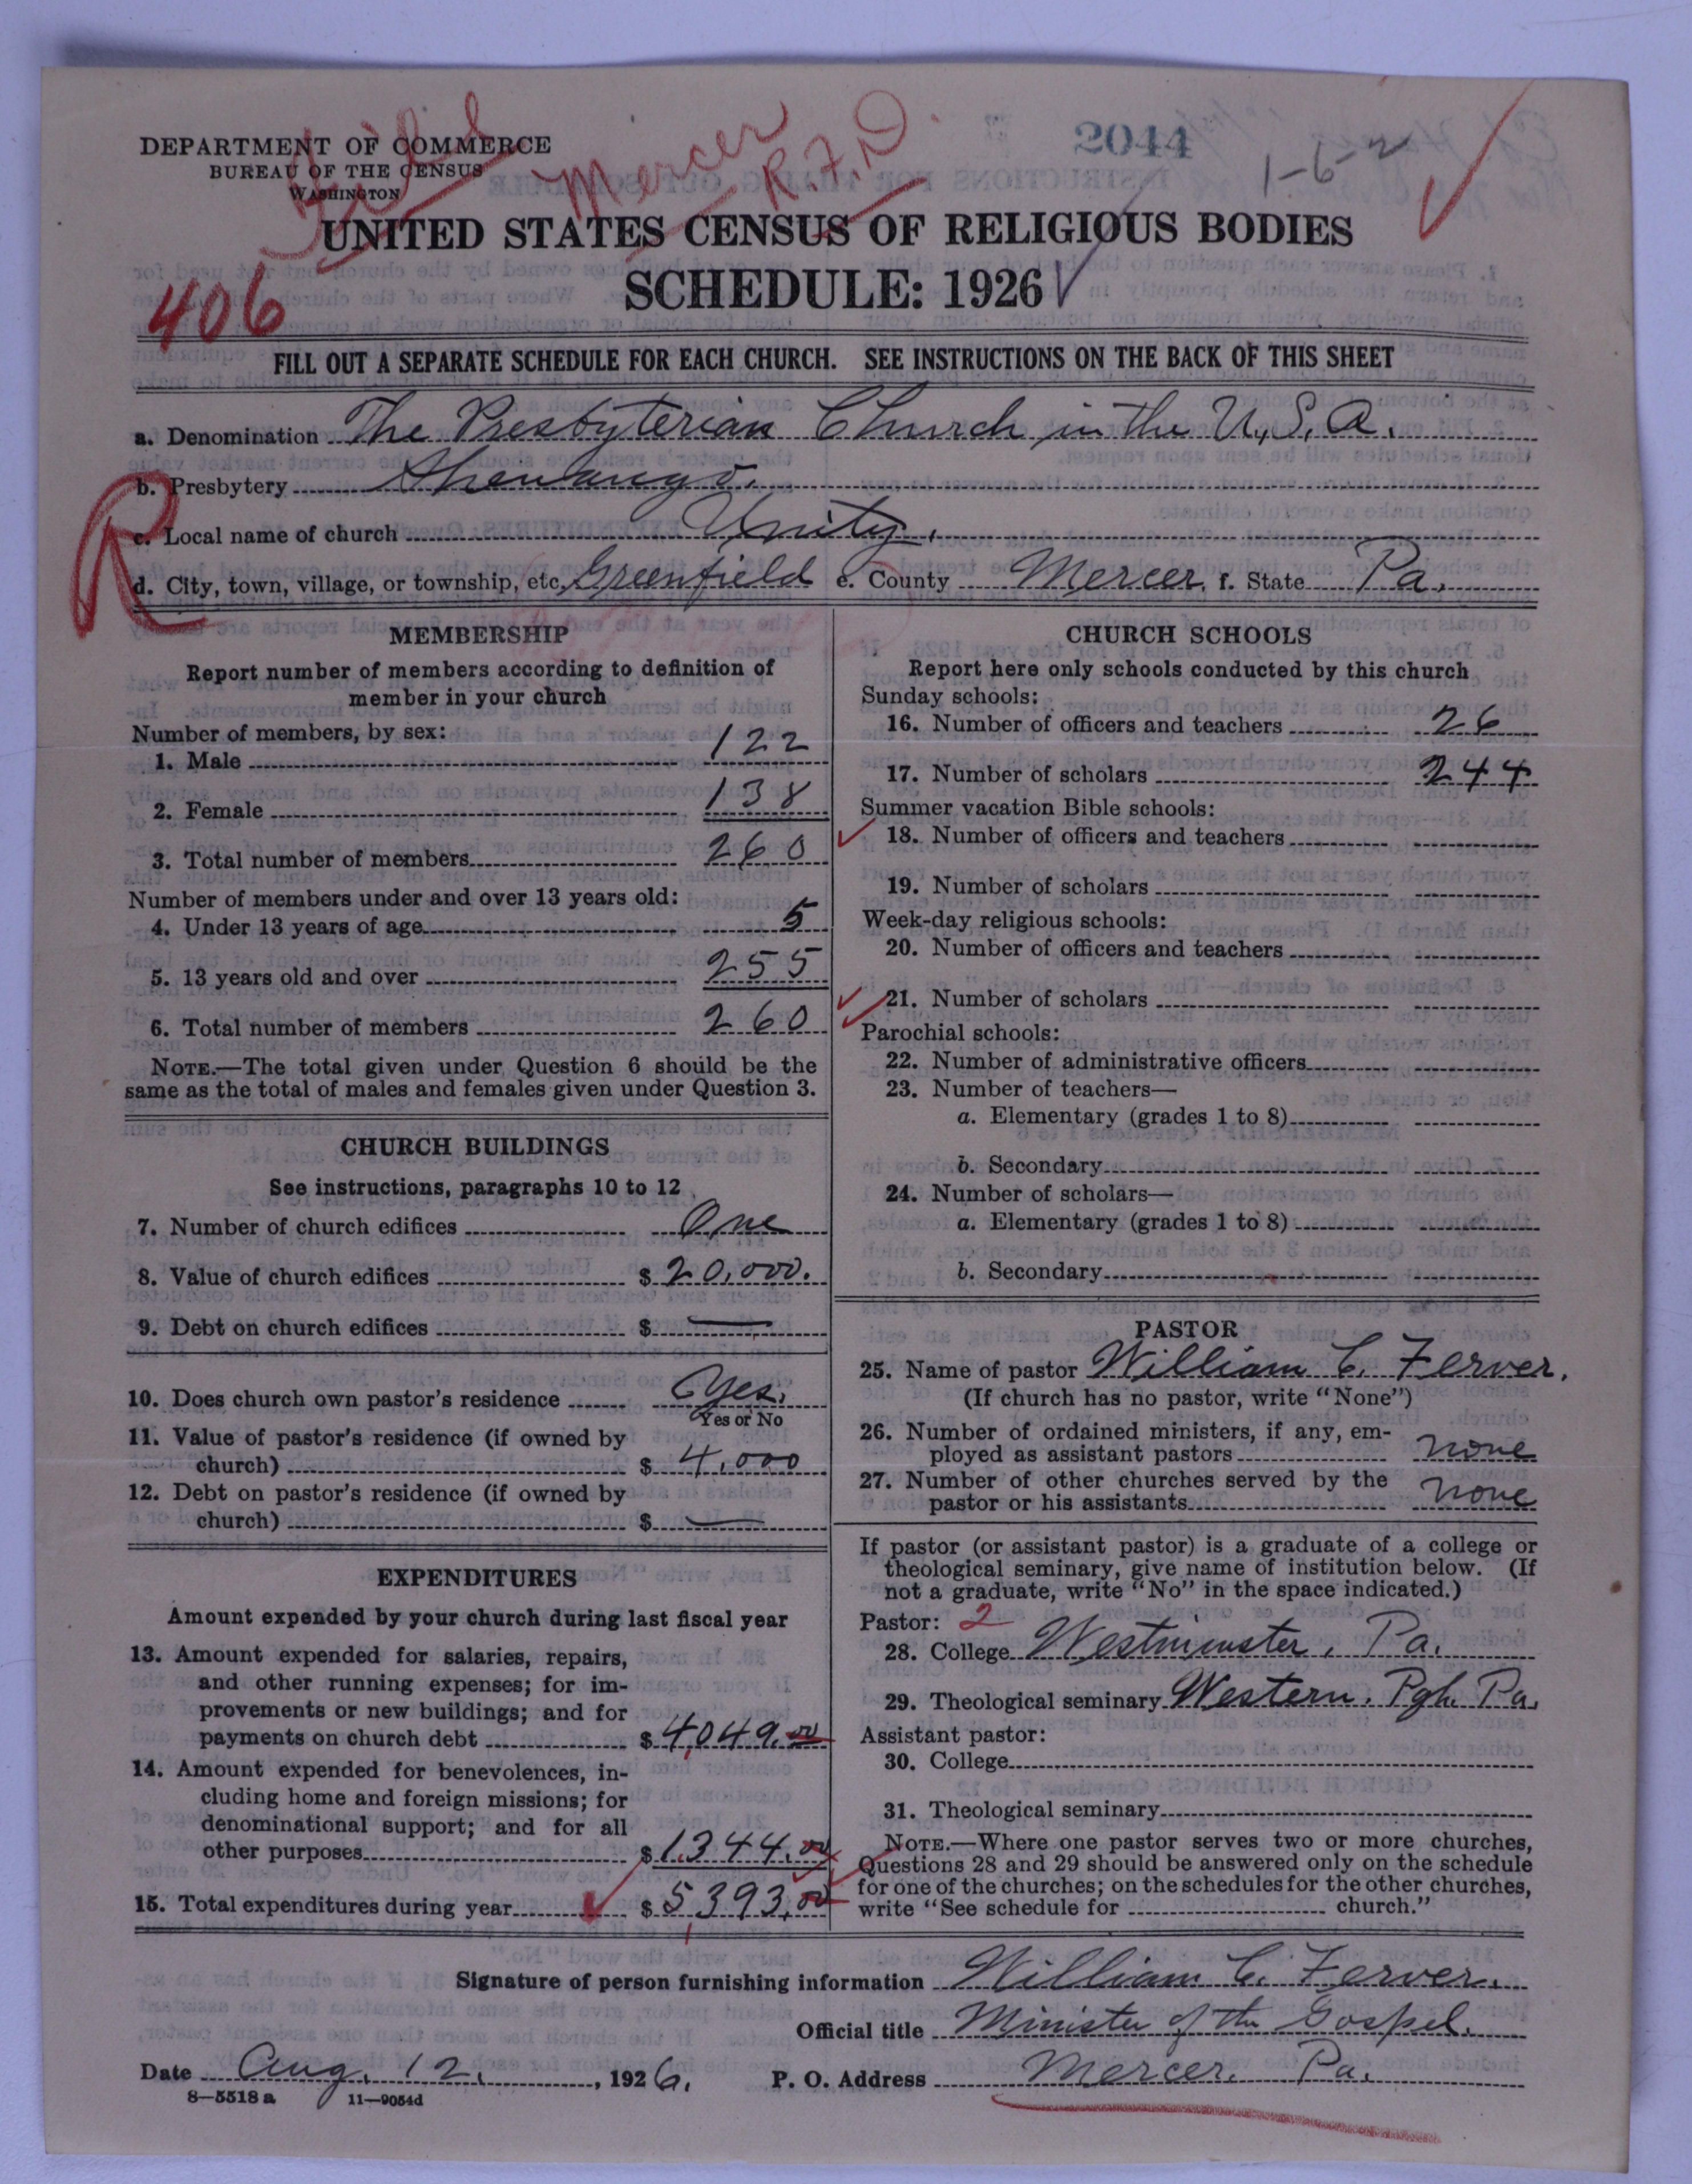 2044
1-6-2
Mercer
R.F.D.
DEPARTMENT OF COMMERCE
BUREAU OF THE CENSUS
WASHINGTON
UNITED STATES CENSUS OF RELIGIOUS BODIES
SCHEDULE: 1926
406
FILL OUT A SEPARATE SCHEDULE FOR EACH CHURCH. SEE INSTRUCTIONS ON THE BACK OF THIS SHEET
a. Denomination The Presbyterian Church in the U.S.A.
b. Presbytery Shenango.
R
c. Local name of church Unity.
d. City, town, village, or township, etc. Greenfield e. County Mercer. f. State Pa.
MEMBERSHIP
Report number of members according to definition of
member in your church
Number of members, by sex:
1. Male 122
2. Female 138
3. Total number of members 260
Number of members under and over 13 years old:
4. Under 13 years of age 5
5. 13 years old and over 255
6. Total number of members 260
NOTE.—The total given under Question 6 should be the
same as the total of males and females given under Question 3.
CHURCH BUILDINGS
See instructions, paragraphs 10 to 12
7. Number of church edifices One
8. Value of church edifices $ 20,000.
9. Debt on church edifices $ —
10. Does church own pastor's residence Yes.
Yes or No
11. Value of pastor's residence (if owned by
church) $ 4,000
12. Debt on pastor's residence (if owned by
church) $ —
EXPENDITURES
Amount expended by your church during last fiscal year
13. Amount expended for salaries, repairs,
and other running expenses; for im-
provements or new buildings; and for
payments on church debt $ 4,049.00
14. Amount expended for benevolences, in-
cluding home and foreign missions; for
denominational support; and for all
other purposes $ 1,344.00
15. Total expenditures during year $ 5,393.00
CHURCH SCHOOLS
Report here only schools conducted by this church
Sunday schools:
16. Number of officers and teachers 26
17. Number of scholars 244
Summer vacation Bible schools:
18. Number of officers and teachers
19. Number of scholars
Week-day religious schools:
20. Number of officers and teachers
21. Number of scholars
Parochial schools:
22. Number of administrative officers
23. Number of teachers—
a. Elementary (grades 1 to 8)
b. Secondary
24. Number of scholars—
a. Elementary (grades 1 to 8)
b. Secondary
PASTOR
25. Name of pastor William C. Ferver.
(If church has no pastor, write "None")
26. Number of ordained ministers, if any, em-
ployed as assistant pastors none
27. Number of other churches served by the
pastor or his assistants none
If pastor (or assistant pastor) is a graduate of a college or
theological seminary, give name of institution below. (If
not a graduate, write "No" in the space indicated.)
Pastor: 2
28. College Westminster, Pa.
29. Theological seminary Western. Pgh. Pa.
Assistant pastor:
30. College
31. Theological seminary
NOTE.—Where one pastor serves two or more churches,
Questions 28 and 29 should be answered only on the schedule
for one of the churches; on the schedules for the other churches,
write "See schedule for church."
Signature of person furnishing information William C. Ferver.
Official title Minister of the Gospel.
Date Aug. 12., 1926. P. O. Address Mercer. Pa.
8—5518 a 11—9054d